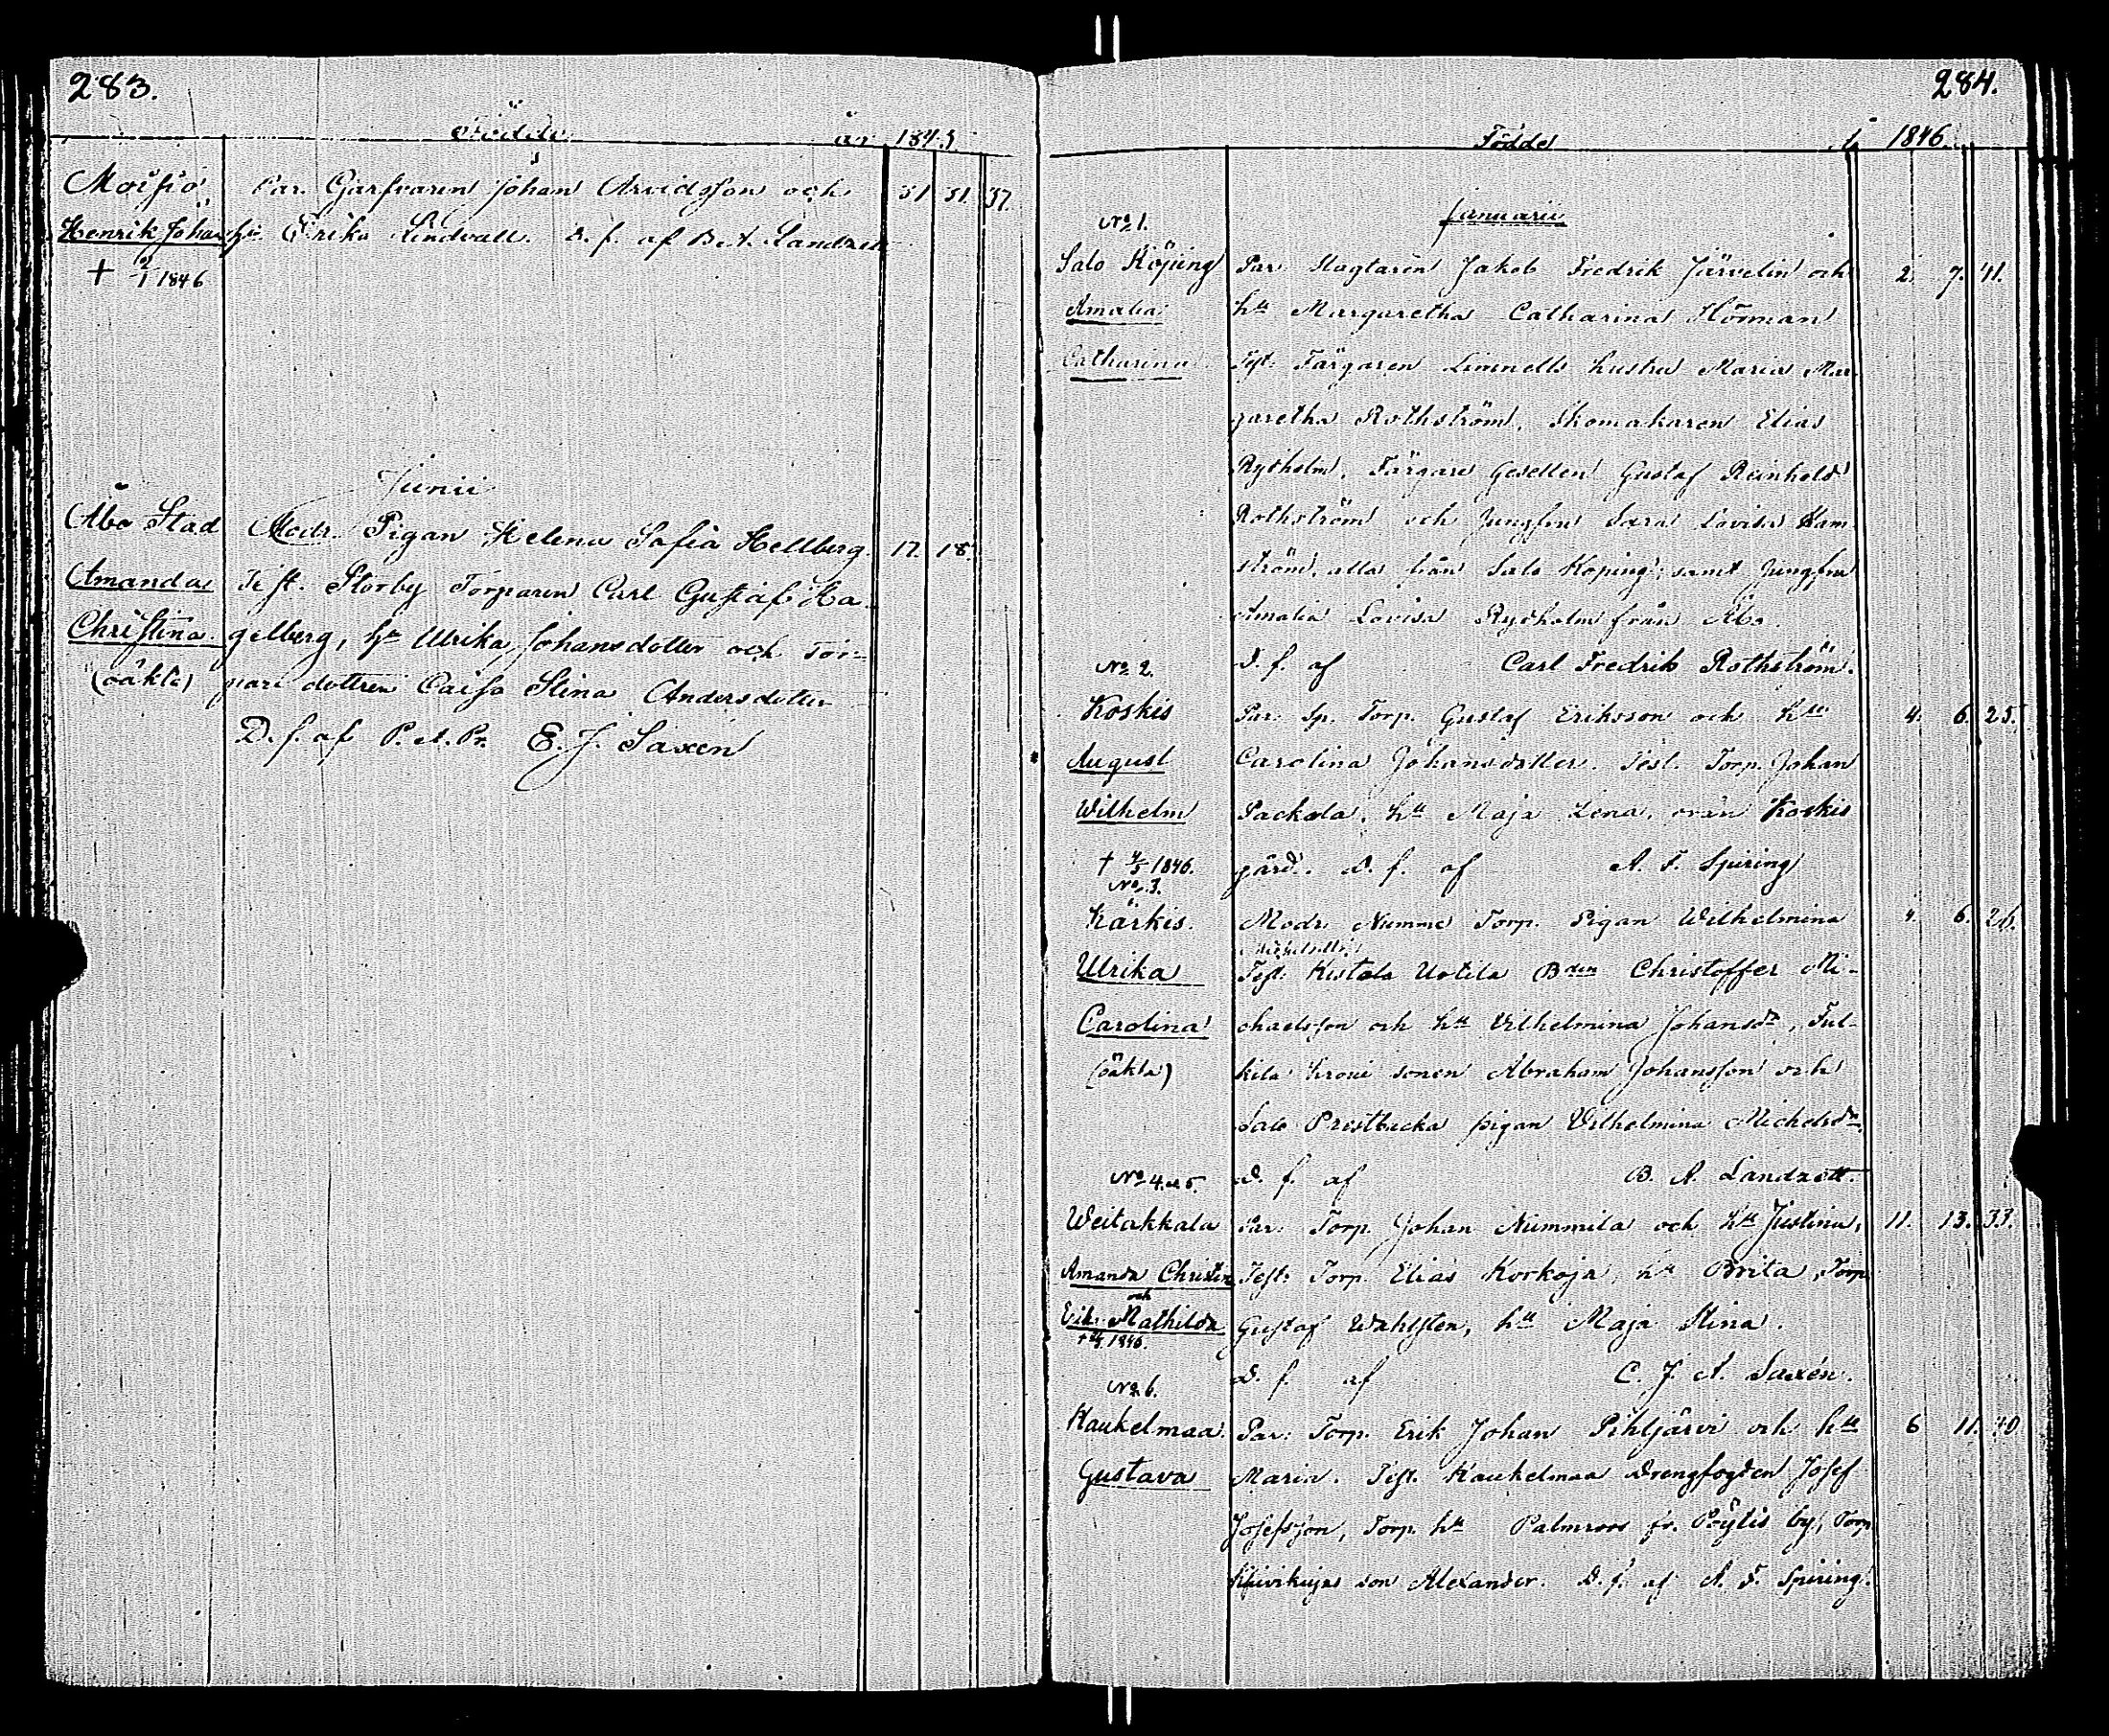 283.
Födde år 1845
Moisio Par. Garfvaren Johan Arvidsson och 31 31. 37.
Henrik Johan hu Erika Lindvall. D. f. af B. A. Landzett
+ 2/1 1846
Junii
Åbo Stad Modr. Pigan Helena Sofia Hellberg. 17. 18.
Amanda Test. Storby Torparen Carl Gustaf Ha-
Christina gelberg, hu Ulrika Johansdotter och Tor-
(oäkta) pare dottren Caisa Stina Andersdotter
D. f. af P. A. Pr. E. J. Saxen
284.
Födde 1846.
Januarii
No 1.
Salo Köping Par. Slagtaren Jakob Fredrik Järvelin och 2. 7. 41.
Amalia hu Margaretha Catharina Hörman
Catharina Test. Färgaren Limnells hustru Maria Mar-
garetha Rothström, Skomakaren Elias
Rytholm, Färgare Gesellen Gustaf Reinhold
Rothström och Jungfru Sara Lovisa Ham-
ström, alla från Salo Köping, samt Jungfru
Amalia Lovisa Rydholm från Åbo.
No 2. D. f. af Carl Fredrik Rothström.
Koskis Par. Sp. Torp. Gustaf Eriksson och hu 4. 6. 25.
August Carolina Johansdotter. Test. Torp. Johan
Wilhelm Packala, hu Maja Lena, från Koskis
+ 1846. gård. D. f. af A. F. Spiring
No 3.
Kärkis. Modr. Numme Torp. Pigan Wilhelmina 4. 6. 26.
Ulrika Test. Kistola Uotila Bden Christoffer Mi-
Carolina chaelsson och hu Vilhelmina Johansdr,
(oäkta) sonen Abraham Johansson och
Salo Prestbacka pigan Vilhelmina Michelsdr.
No 4. o 5. D. f. af B. A. Landzett.
Weitakkala Par. Torp. Johan Nummila och hu Justina, 11. 13. 33.
Amanda Christin Test. Torp. Elias Korkoja, hu Brita, Torp
och
Erik Mathilda Gustaf Wahlsten, hu Maja Stina.
+ 1846.
D. f. af C. J. A. Saxén.
No 6.
Haukelmaa Par. Torp. Erik Johan Pihljärvi och hu 6 11. 40
Gustava Maria. Test. Haukelmaa Drengfogden Josef
Josefsson, Torp. hu Palmroos fr. Pöytis by, Torp
son Alexander. D. f. af A. F. Spiring.